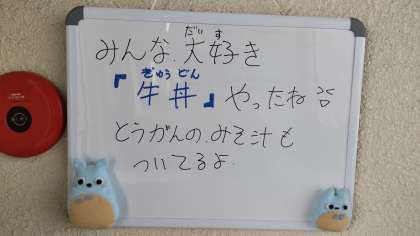 みんな.大好き
だいす
『牛丼』やったね
ぎゅうどん
とうがんの.みそ汁も
ついてるよ.